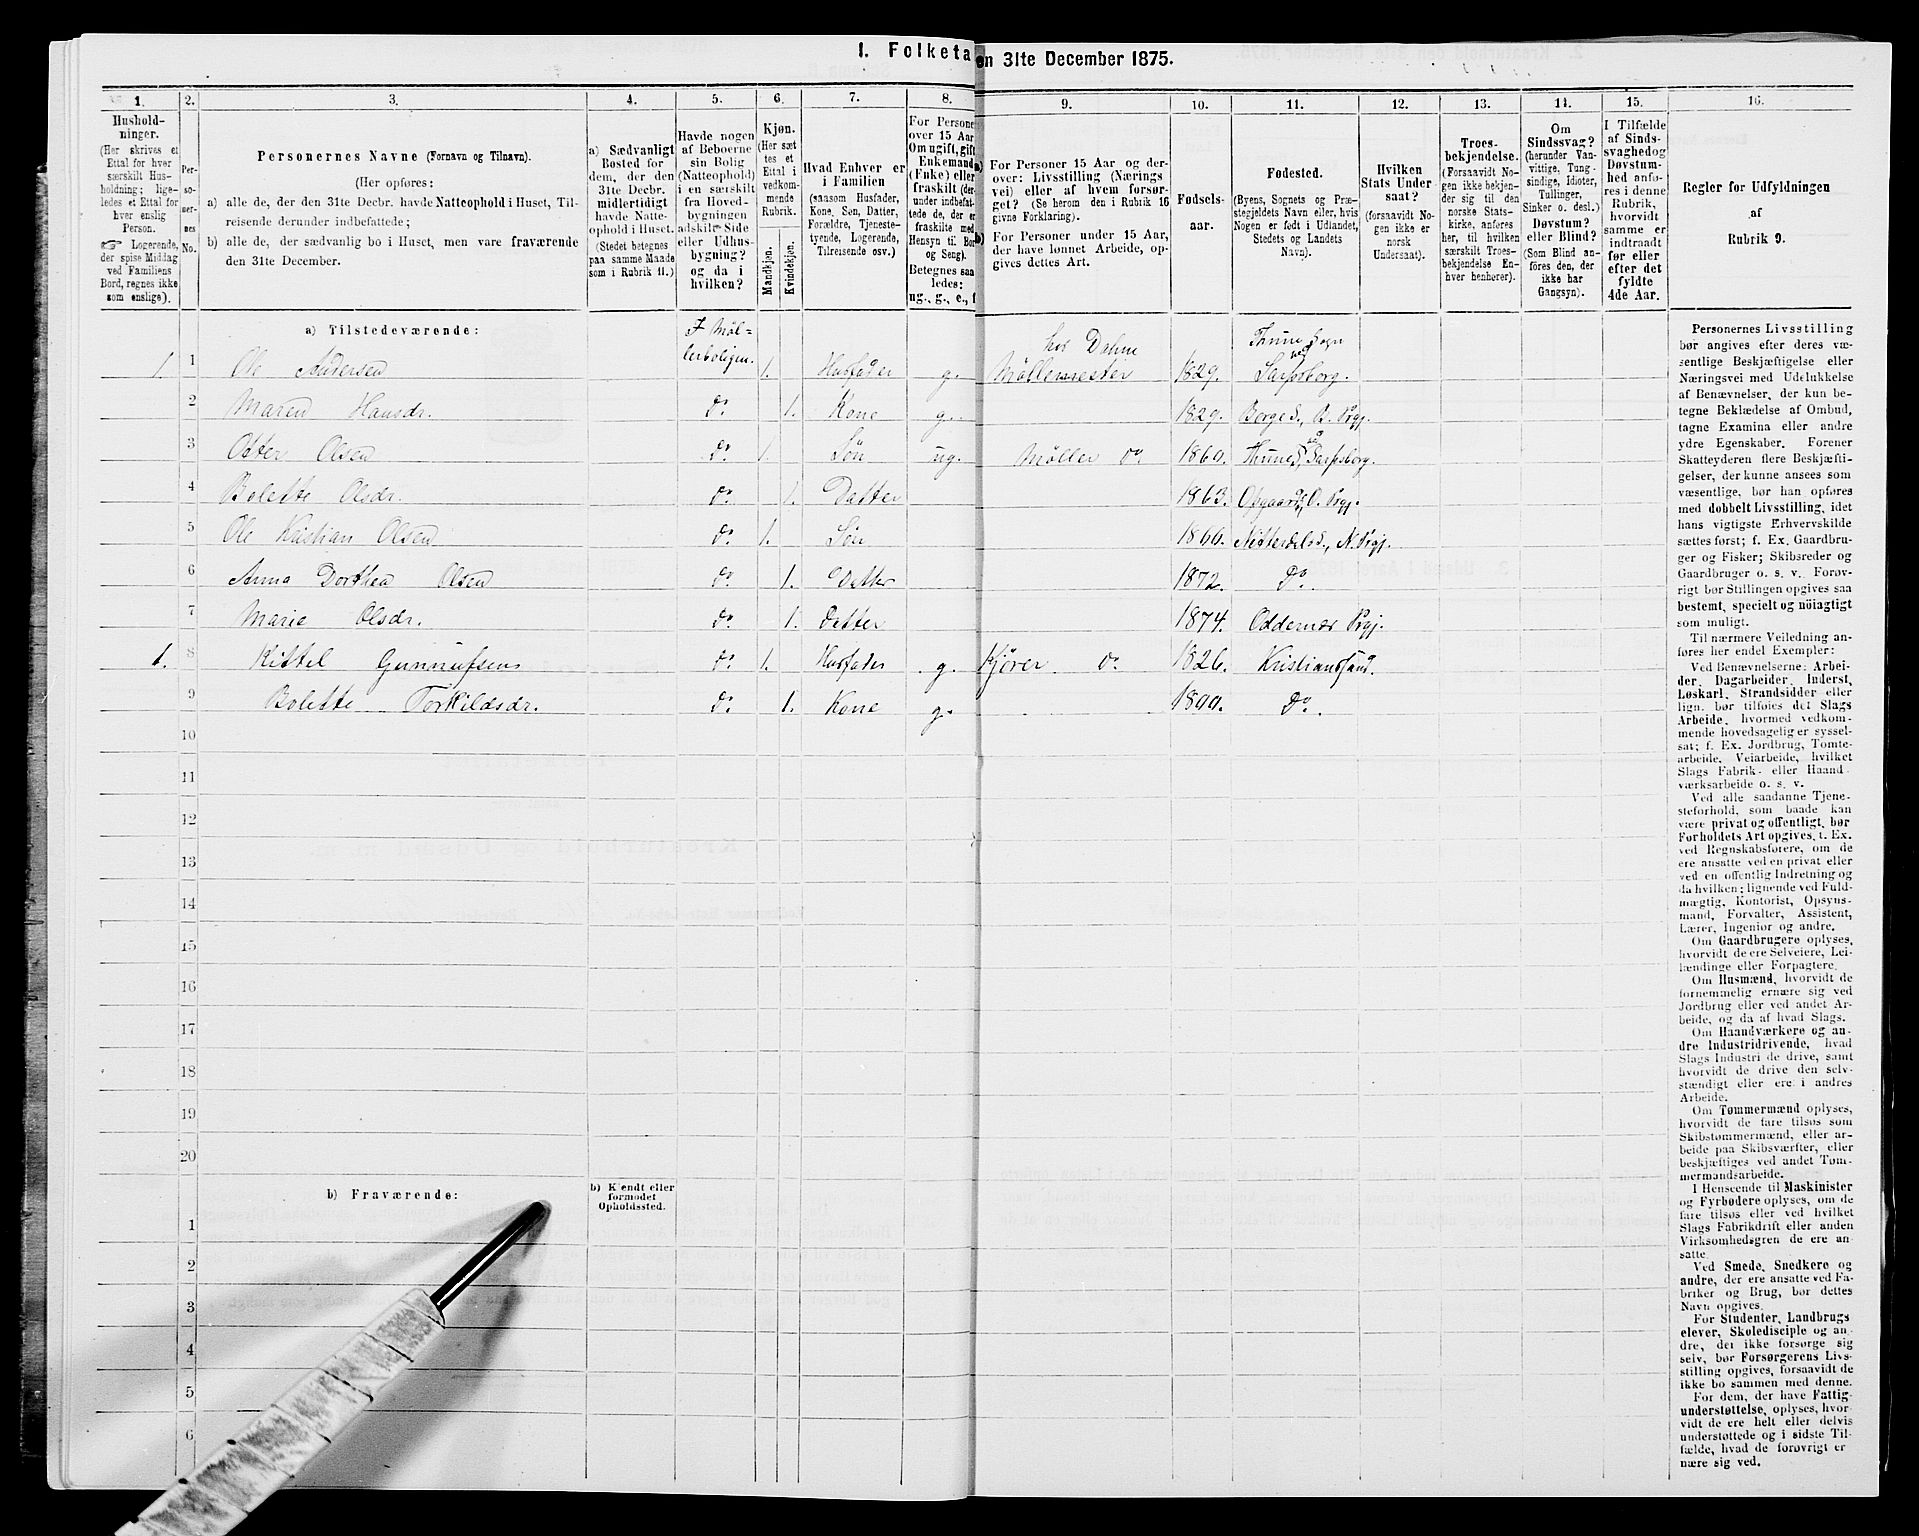 1. Folketa
en 31te December 1875.
1.
2.
3.
4.
5.
6.
7.
8.
9.
10.
11.
12.
13.
14.
15.
16.
Hushold-
ninger.
(Her skrives et
Ettal for hver
særskilt Hus-
holdning; lige-
ledes et Ettal for
hver enslig
Person.
Logerende,
der spise Middag
ved Familiens
Bord, regnes ikke
som enslige).
Per-
so-
ner-
nes
No.
Personernes Navne (Fornavn og Tilnavn).
(Her opføres:
a) alle de, der den 31te Decbr. havde Natteophold i Huset, Til-
reisende derunder indbefattede;
b) alle de, der sædvanlig bo i Huset, men vare fraværende
den 31te December.
a) Sædvanligt
Bosted for
dem, der den
31te Decbr.
midlertidigt
havde Natte-
ophold i Huset.
(Stedet betegnes
paa samme Maade
som i Rubrik 11.)
Havde nogen
af Beboerne
sin Bolig
(Natteophold)
i en særskilt
fra Hoved-
bygningen
adskilt Side
eller Udhus-
bygning?
og da i
hvilken?
Kjøn.
(Her sæt
tes et
Ettal i
vedkom-
mende
Rubrik.
Mandkjøn.
Kvindekjøn.
Hvad Enhver er
i Familien
(saasom Husfader,
Kone, Søn, Datter,
Forældre, Tjeneste-
tyende, Logerende,
Tilreisende osv.)
For Persone
over 15 Aar
Om ugift, gift
Enkemand
(Enke) eller
fraskilt (der-
under indbefat-
tede de, der er
fraskilte med
Hensyn til Bor
og Seng).
Betegnes saa
ledes:
ug., g., e., f
a)
For Personer 15 Aar og der-
over: Livsstilling (Nærings
vei) eller af hvem forsør-
get? (Se herom den i Rubrik 16
givne Forklaring).
b)
For Personer under 15 Aar,
der have lønnet Arbeide, op-
gives dettes Art.
Fødsels-
aar.
Fødested.
(Byens, Sognets og Præ-
stegjeldets Navn eller, hvis
Nogen er født i Udlandet,
Stedets og Landets
Navn).
Hvilken
Stats Under
saat?
(forsaavidt No-
gen ikke er
norsk
Undersaat).
Troes-
bekjendelse.
(Forsaavidt No-
gen ikke bekjen-
der sig til den
norske Stats-
kirke, anføres
her, til hvilken
særskilt Troes-
bekjendelse En-
hver henhører).
Om
Sindssvag?
(herunder Van-
vittige, Tung-
sindige, Idioter,
Tullinger,
Sinker o. desl.)
Døvstum?
eller Blind?
(Som Blind an-
føres den, der
ikke har
Gangsyn).
I Tilfælde
af Sinds-
svaghed og
Døvstum-
hed anfø-
res i denne
Rubrik,
hvorvidt
samme er
indtraadt
før eller
efter det
fyldte
4de Aar.
Regler for Udfyldningen
af
Rubrik 9.
a) Tilstedeværende:
I Møl-
lerboligen.
hos Dahne
Thune Sogn
1. 1 Ole Andersen 1. Husfader g. Møllemester 1829. Sarpsborg.
2 Maren Hansdr. do. 1. Kone g. 1829. Borge S., B. Prgj.
3 Otter Olsen do. 1. Søn ug. Møller do. 1860. Thune S, Sarpsborg.
4 Bolette Olsdr. do. 1. Datter 1863. Opgaard S, O. Prgj.
5 Ole Kristian Olsen do. 1. Søn 1866. Nitterdals S., N. Prgj.
6 Anna Dorthea Olsen do. 1. Datter 1872. Do.
7 Marie Olsdr. do. 1. Datter 1874. Oddernæs Prgj.
1. 8 Kittel Gunnufsen do. 1. Husfader g. Kjører do. 1826. Kristiansand.
9 Bolette Torkildsdr. do. 1. Kone g. 1800. Do.
10
11
12
13
14
15
16
17
18
19
20
b) Fraværende:
b) Kjendt eller
formodet
Opholdssted.
1
2
3
4
5
6
Personernes Livsstilling
bør angives efter deres væ-
sentlige Beskjæftigelse eller
Næringsvei med Udelukkelse
af Benævnelser, der kun be-
tegne Beklædelse af Ombud,
tagne Examina eller andre
ydre Egenskaber. Forener
Skatteyderen flere Beskjæfti-
gelser, der kunne ansees som
væsentlige, bør han opføres
med dobbelt Livsstilling, idet
hans vigtigste Erhvervskilde
sættes først; f. Ex. Gaardbru-
ger og Fisker; Skibsreder og
Gaardbruger o. s. v. Forøv-
rigt bør Stillingen opgives saa
bestemt, specielt og nøiagtigt
som muligt.
Til nærmere Veiledning an-
føres her endel Exempler:
Ved Benævnelserne: Arbei-
der, Dagarbeider, Inderst,
Løskarl, Strandsidder eller
lign. bør tilføies det Slags
Arbeide, hvormed vedkom-
mende hovedsagelig er syssel-
sat; f. Ex. Jordbrug, Tomte-
arbeide, Veiarbeide, hvilket
Slags Fabrik- eller Haand-
værksarbeide o. s. v.
Ved alle saadanne Tjene-
steforhold, som baade kan
være privat og offentligt, bør
Forholdets Art opgives, t. Ex.
ved Regnskabsførere, om de
ere ansatte ved en privat eller
ved en offentlig Indretning og
da hvilken; lignende ved Fuld-
mægtig, Kontorist, Opsyns-
mand, Forvalter, Assistent,
Lærer, Ingeniør og andre.
Om Gaardbrugere oplyses,
hvorvidt de ere Selveiere, Lei-
lændinge eller Forpagtere.
Om Husmænd, hvorvidt de
fornemmelig ernære sig ved
Jordbrug eller ved andet Ar-
beide, og da af hvad Slags.
Om Haandværkere og an-
dre Industridrivende, hvad
Slags Industri de drive, samt
hvorvidt de drive den selv-
stændigt eller ere i andres
Arbeide.
Om Tømmermænd oplyses,
hvorvidt de fare tilsøs som
Skibstømmermænd, eller ar-
beide paa Skibsværfter, eller
beskjæftiges ved andet Tøm-
mermandsarbeide.
I Henseende til Maskinister
og Fyrbødere oplyses, om de
fare tilsøs eller ved hvilket
Slags Fabrikdrift eller anden
Virksomhedsgren de ere an-
satte.
Ved Smede, Snedkere og
andre, der ere ansatte ved Fa-
briker og Brug, bør dettes
Navn opgives.
For Studenter, Landbrugs
elever, Skoledisciple og an-
dre, der ikke forsørge sig
selv, bør Forsørgerens Livs-
stilling opgives, forsaavidt de
ikke bo sammen med denne.
For dem, der have Fattig-
understøttelse, oplyses, hvor-
vidt de ere helt eller delvis
understøttede og i sidste Til-
fælde, hvad de forøvrigt er
nære sig ved.